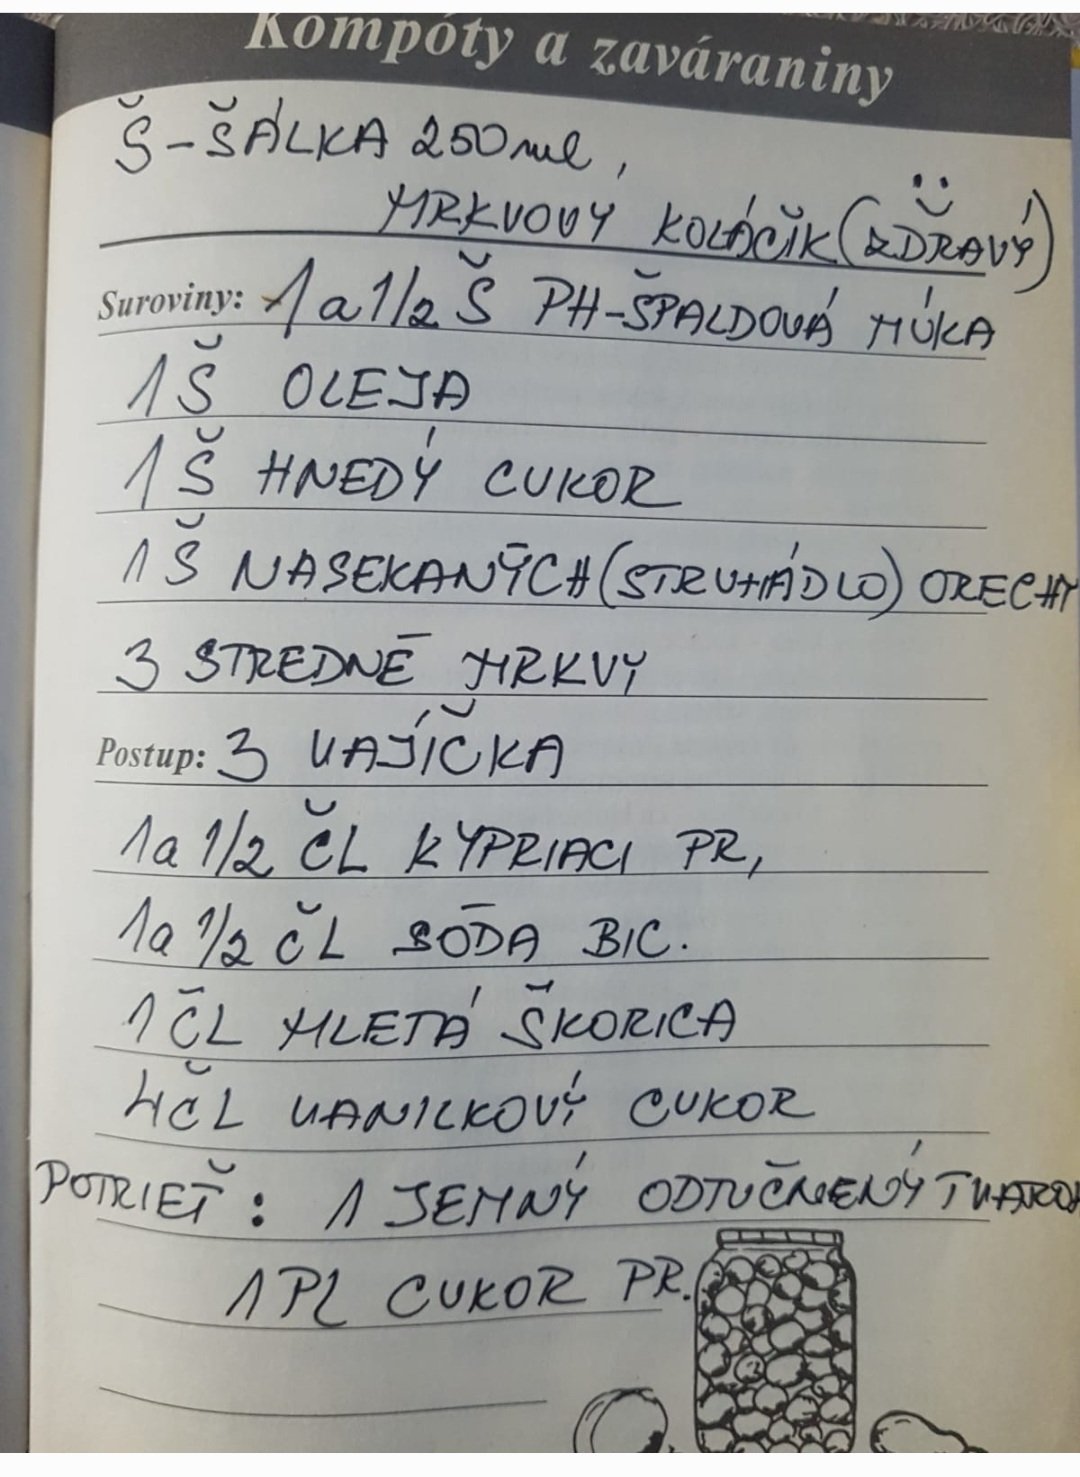 Kompóty a zaváraniny
Š-ŠÁLKA 250ml,
MRKVOVÝ KOLÁČIK (ZDRAVÝ)
Suroviny: 1 a 1/2 Š PH-ŠPALDOVÁ MÚKA
1 Š OLEJA
1 Š HNEDÝ CUKOR
1 Š NASEKANÝCH (STRUHÁDLO) ORECHY
3 STREDNÉ MRKVY
Postup: 3 VAJÍČKA
1 a 1/2 ČL KYPRIACI PR,
1 a 1/2 ČL SÓDA BIC.
1 ČL MLETÁ ŠKORICA
4 ČL VANILKOVÝ CUKOR
POTRIEŤ: 1 JEMNÝ ODTUČNENÝ TVAROH
1 PL CUKOR PR.